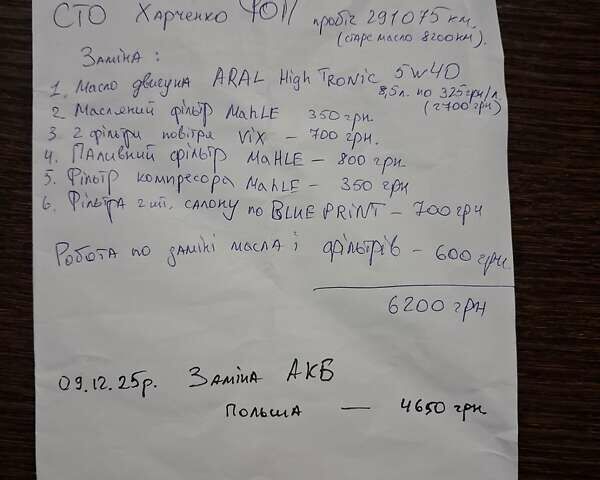 СТО Харченко ФОП пробіг 291075 км.
(старе масло 8200км).
Заміна:
1. Масло двигуна ARAL High Tronic 5W40
8,5л. по 325грн/л.
(2700грн)
2. Масляний фільтр MaHLE 350грн.
3. 2 фільтри повітря VIX – 700грн.
4. Паливний фільтр MAHLE – 800 грн.
5. Фільтр компресора MahLE – 350 грн
6. Фільтра 2шт. салону по BLUE PRINT – 700грн
Робота по заміні масла і фільтрів – 600грн.
6200 грн
09.12.25р. Заміна АКБ
Польша — 4650 грн